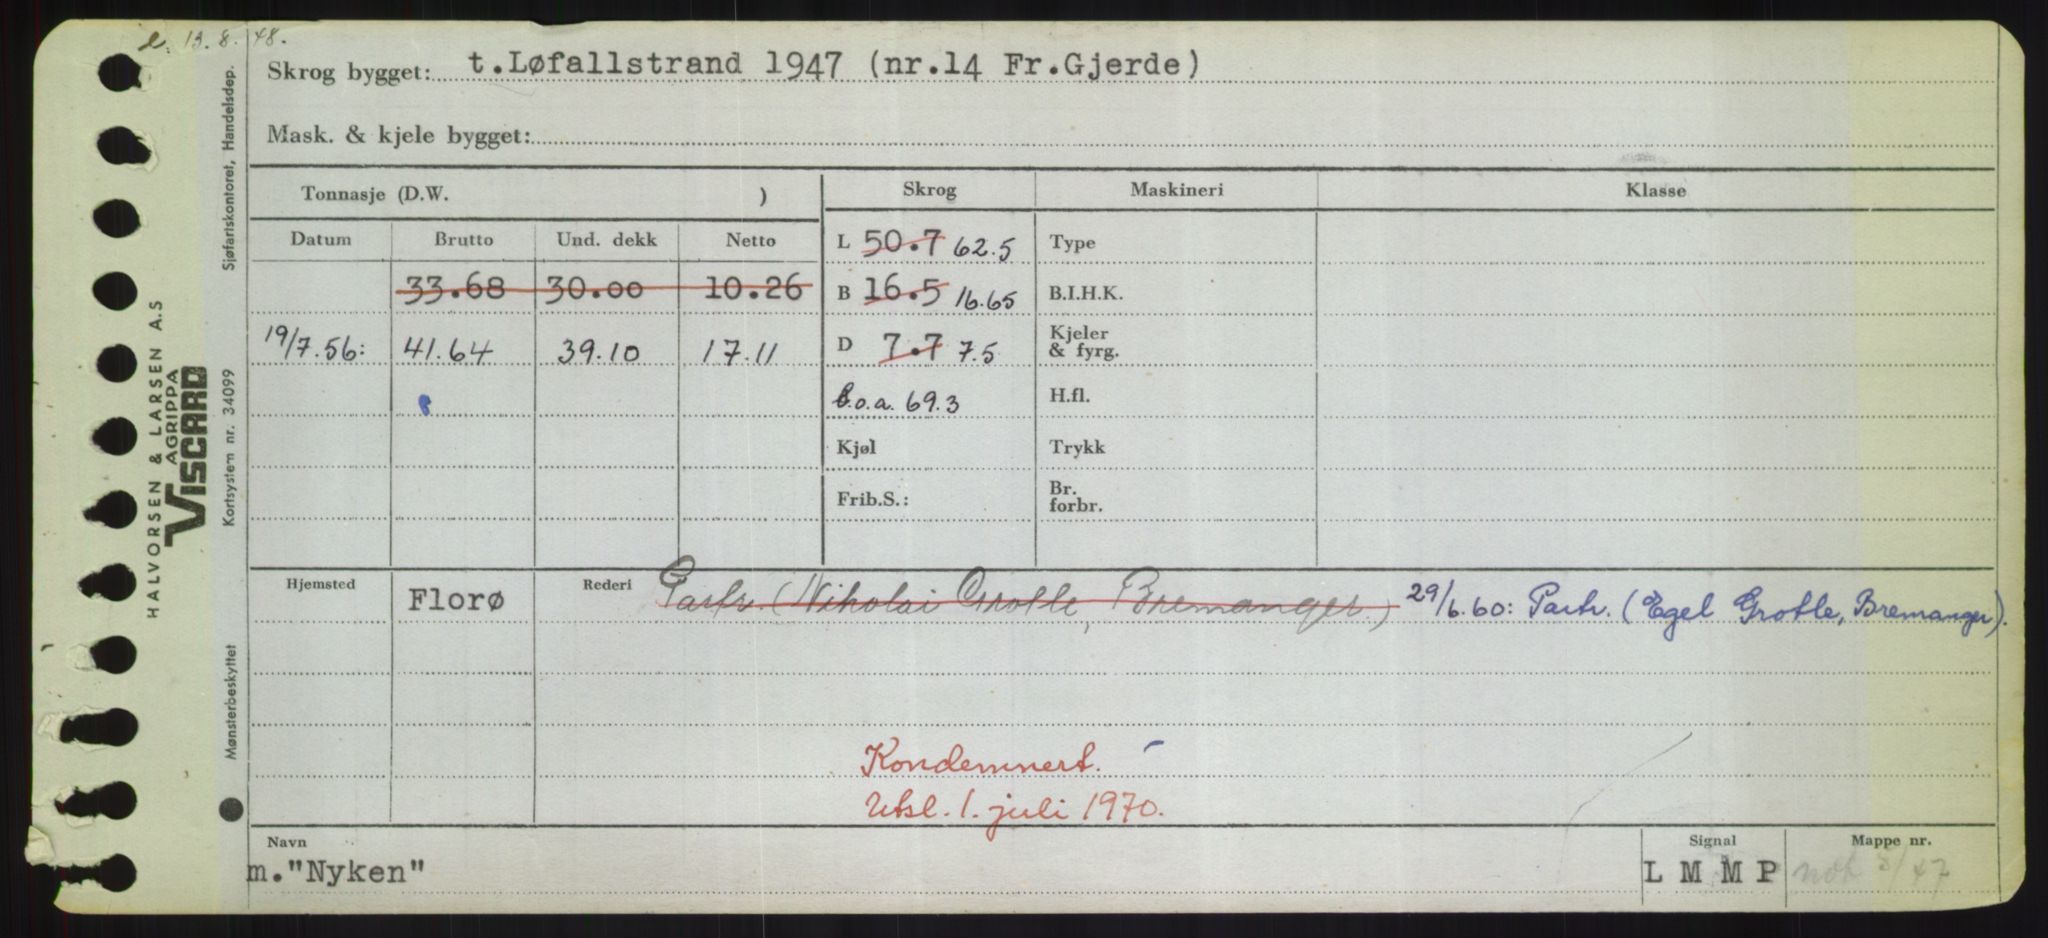 e. 13.8.48.
Skrog bygget: t.Løfallstrand 1947 (nr.14 Fr.Gjerde)
Mask. & kjele bygget:
Tonnasje (D.W. )
Skrog Maskineri Klasse
Datum Brutto Und. dekk Netto
L 50.7 62.5 Type
33.68 30.00 10.26
B 16.5 16.65 B.I.H.K.
19/7.56: 41.64 39.10 17.11
D 7.7 7.5 Kjeler & fyrg.
b.o.a. 69.3 H.fl.
Kjøl Trykk
Frib.S.: Br. forbr.
Hjemsted Florø Rederi Partr. (Nikolai Grotle, Bremanger.) 29/6.60: Partr. (Egel Grotle, Bremanger).
Kondemnert.
Utsl. 1. juli 1970.
Navn Signal Mappe nr.
m."Nyken" L M M P not 8/47
HALVORSEN & LARSEN A.S
AGRIPPA
VISCARD
Sjøfartskontoret, Handelsdep.
Kortsystem nr. 34099
Mønsterbeskyttet